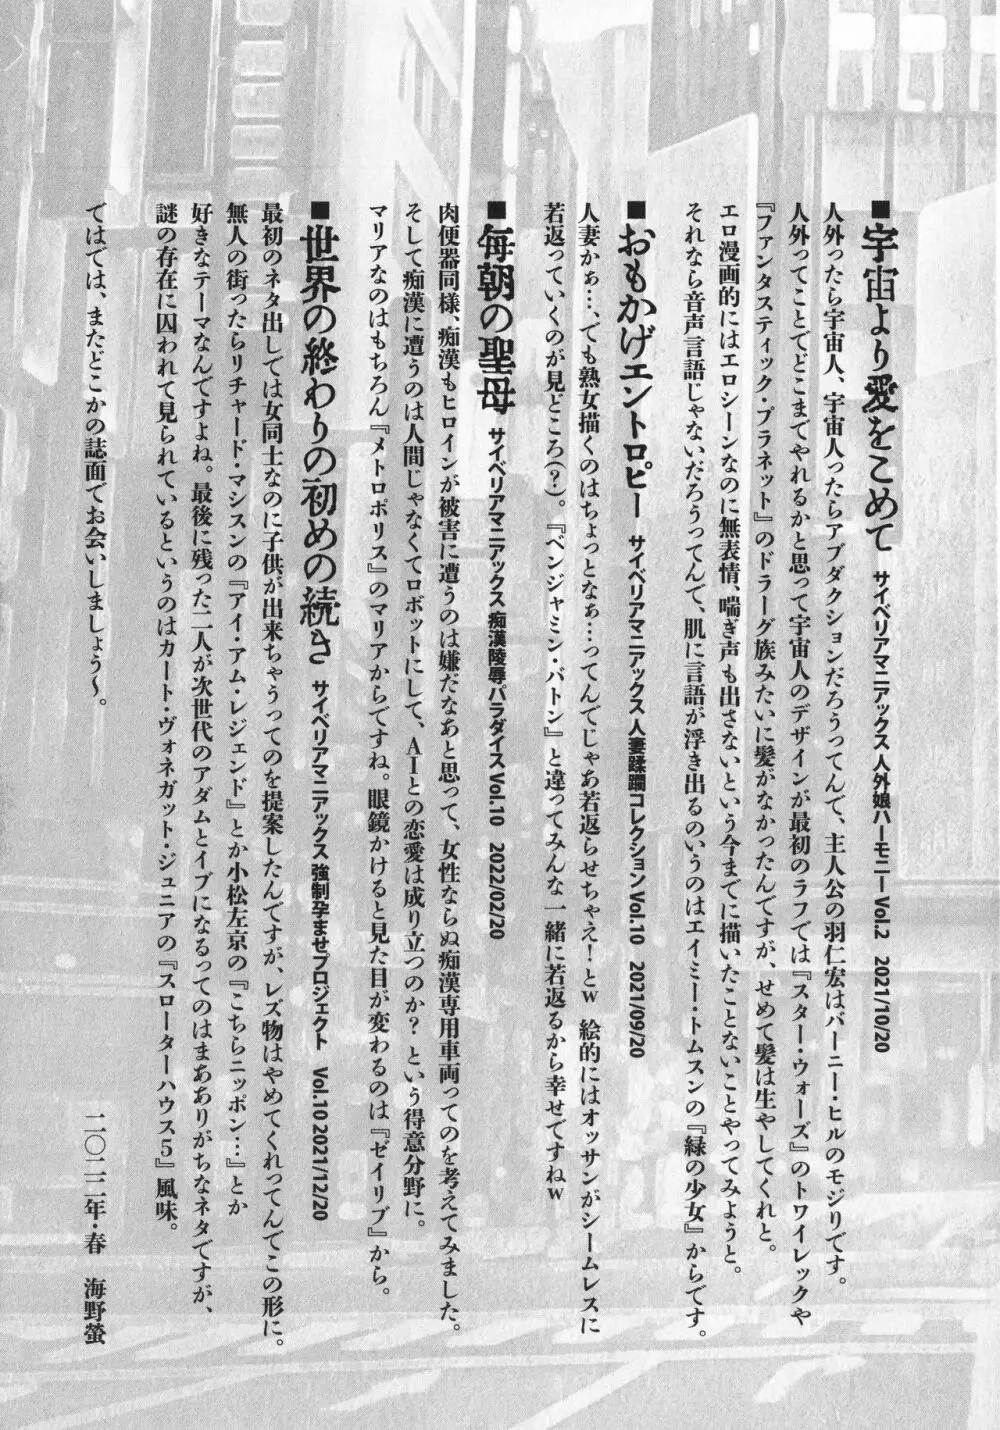 ■宇宙より愛をこめて サイベリアマニアックス 人外娘ハーモニーVol.2 2021/10/20
人外ったら宇宙人、宇宙人ったらアブダクションだろうってんで、主人公の羽仁宏はバーニー・ヒルのモジりです。
人外ってことでどこまでやれるかと思って宇宙人のデザインが最初のラフでは『スター・ウォーズ』のトワイレックや
『ファンタスティック・プラネット』のドラーグ族みたいに髪がなかったんですが、せめて髪は生やしてくれと。
エロ漫画的にはエロシーンなのに無表情、喘ぎ声も出さないという今までに描いたことないことやってみようと。
それなら音声言語じゃないだろうってんで、肌に言語が浮き出るのいうのはエイミー・トムスンの『緑の少女』からです。
■おもかげエントロピー サイベリアマニアックス 人妻蹂躙コレクションVol.10 2021/09/20
人妻かぁ…、でも熟女描くのはちょっとなぁ…ってんでじゃあ若返らせちゃえ！とw 絵的にはオッサンがシームレスに
若返っていくのが見どころ(？)。『ベンジャミン・バトン』と違ってみんな一緒に若返るから幸せですねw
■毎朝の聖母 サイベリアマニアックス 痴漢陵辱パラダイスVol.10 2022/02/20
肉便器同様、痴漢もヒロインが被害に遭うのは嫌だなあと思って、女性ならぬ痴漢専用車両ってのを考えてみました。
そして痴漢に遭うのは人間じゃなくてロボットにして、AIとの恋愛は成り立つのか？という得意分野に。
マリアなのはもちろん『メトロポリス』のマリアからですね。眼鏡かけると見た目が変わるのは『ゼイリブ』から。
■世界の終わりの初めの続き サイベリアマニアックス 強制孕ませプロジェクト Vol.10 2021/12/20
最初のネタ出しでは女同士なのに子供が出来ちゃうってのを提案したんですが、レズ物はやめてくれってんでこの形に。
無人の街ったらリチャード・マシスンの『アイ・アム・レジェンド』とか小松左京の『こちらニッポン…』とか
好きなテーマなんですよね。最後に残った二人が次世代のアダムとイブになるってのはまあありがちなネタですが、
謎の存在に囚われて見られているというのはカート・ヴォネガット・ジュニアの『スローターハウス5』風味。
ではでは、またどこかの誌面でお会いしましょう～。
二〇二二年・春 海野螢